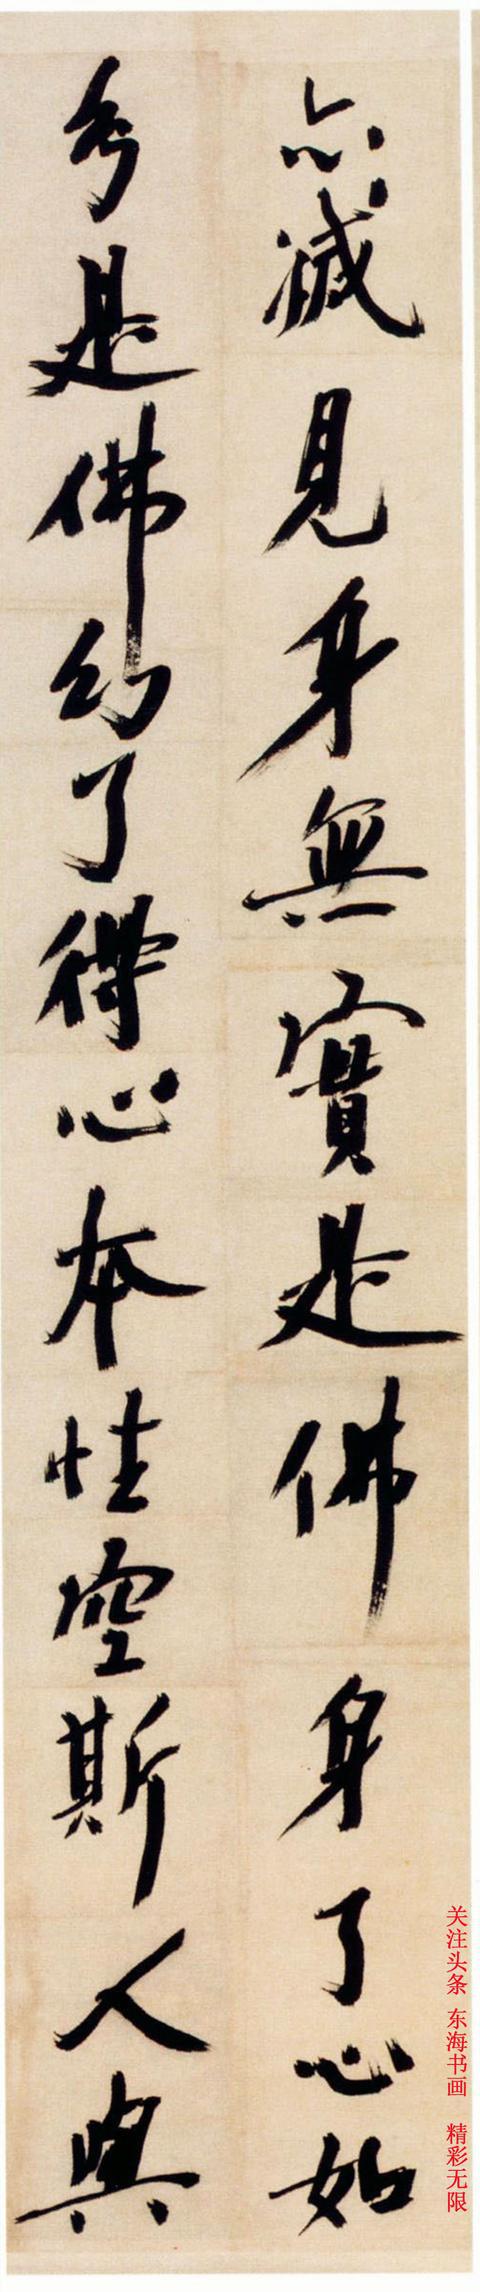 亦滅見身無實是佛身了心如
幻是佛幻了得心本性空斯人與
关注头条 东海书画 精彩无限